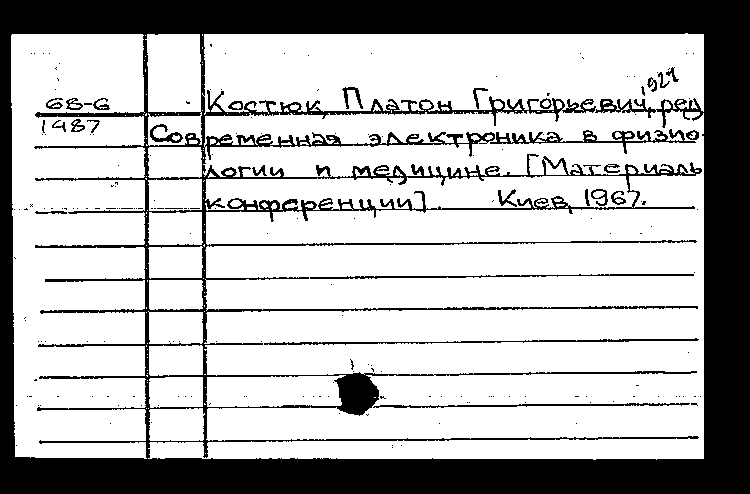 1924
68-6 Костюк, Платон Григорьевич, ред
1487 Современная электроника в физио-
логии и медицине. [Материаль
конференции]. Киев, 1967.